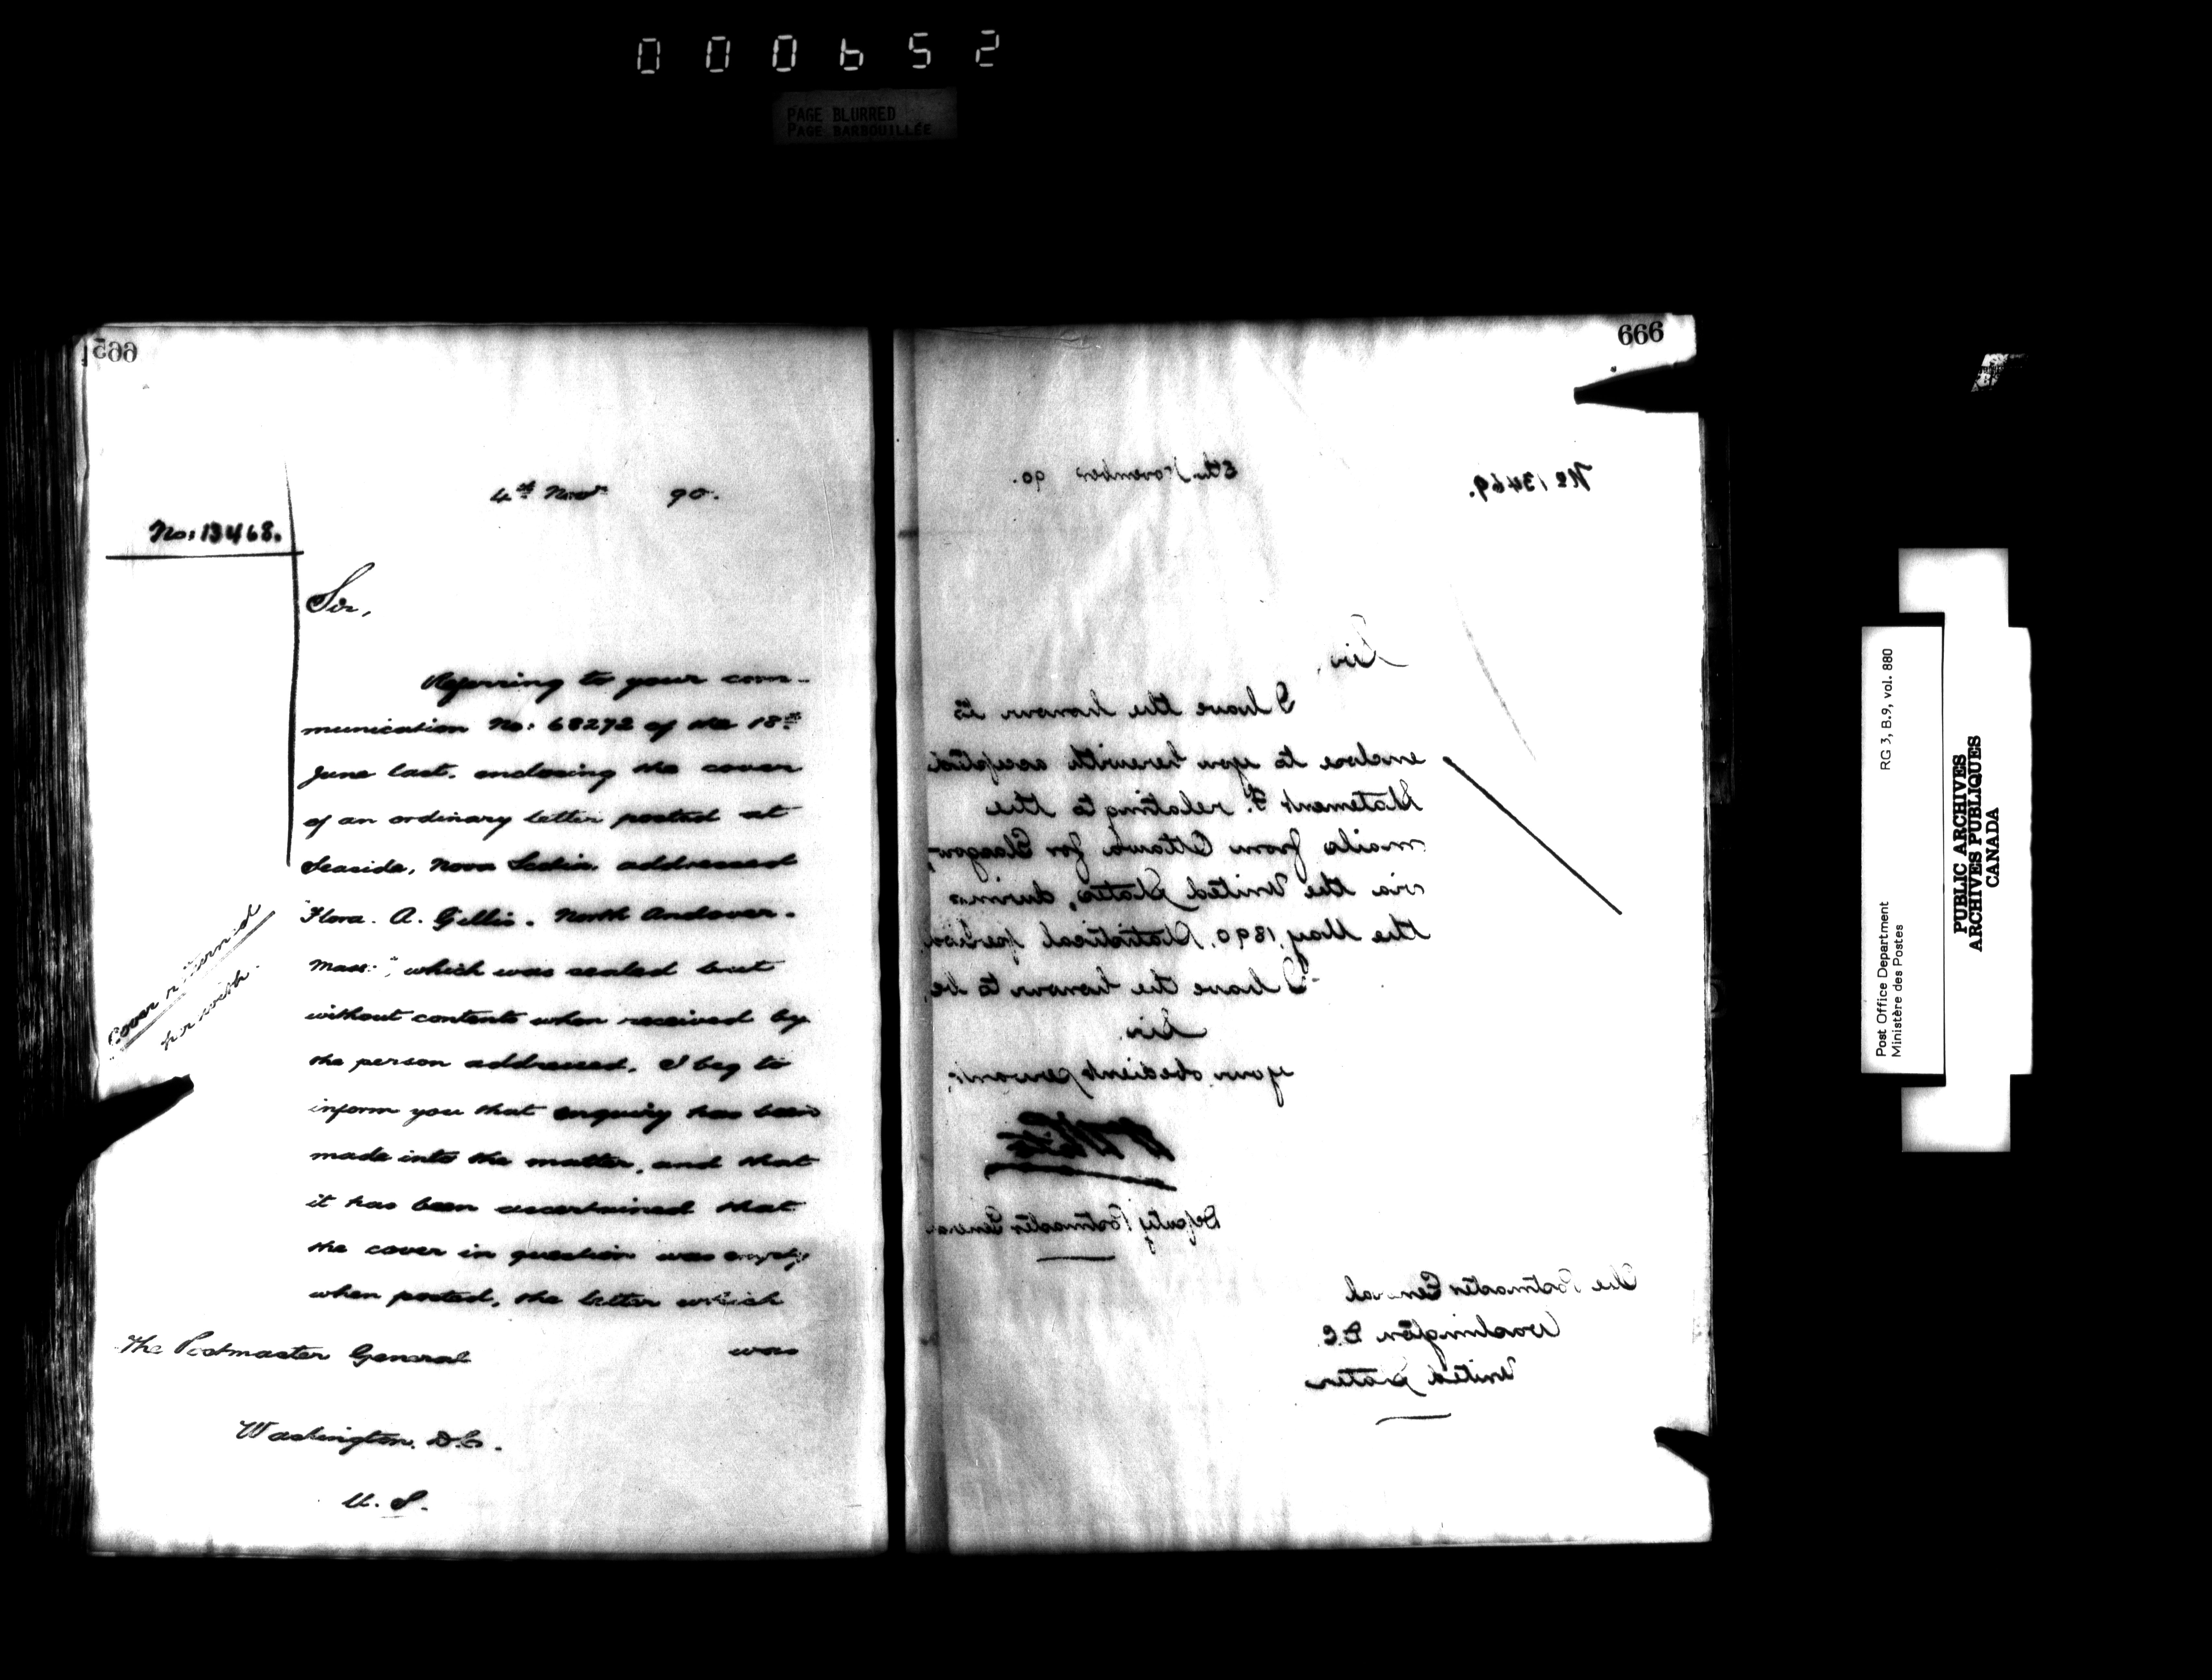 000652
PAGE BLURRED
PAGE BARBOUILLÉE
665
4th Novr 90.
No: 13468.
Sir,
Referring to your com-
munication No: 68272 of the 18th
June last, enclosing the cover
of an ordinary letter posted at
Seaside, Nova Scotia addressed
"Flora. A. Gillis. North Andover.
Mass:", which was sealed but
without contents when received by
the person addressed, I beg to
inform you that enquiry has been
made into the matter, and that
it has been ascertained that
the cover in question was empty
when posted, the letter which
was
Cover returned
herewith.
The Postmaster General
Washington. D.C.
U. S.
666
No 13469.
5th November 90.
Sir,
I have the honour to
enclose to you herewith accepted
Statement F. relating to the
mails from Ottawa for Glasgow,
via the United States, during
the May, 1890, Statistical period.
I have the honour to be,
Sir,
your obedient servant,
Deputy Postmaster General
The Postmaster General
Washington D.C.
United States
Post Office Department
Ministère des Postes
RG 3, B.9, vol. 880
PUBLIC ARCHIVES
ARCHIVES PUBLIQUES
CANADA